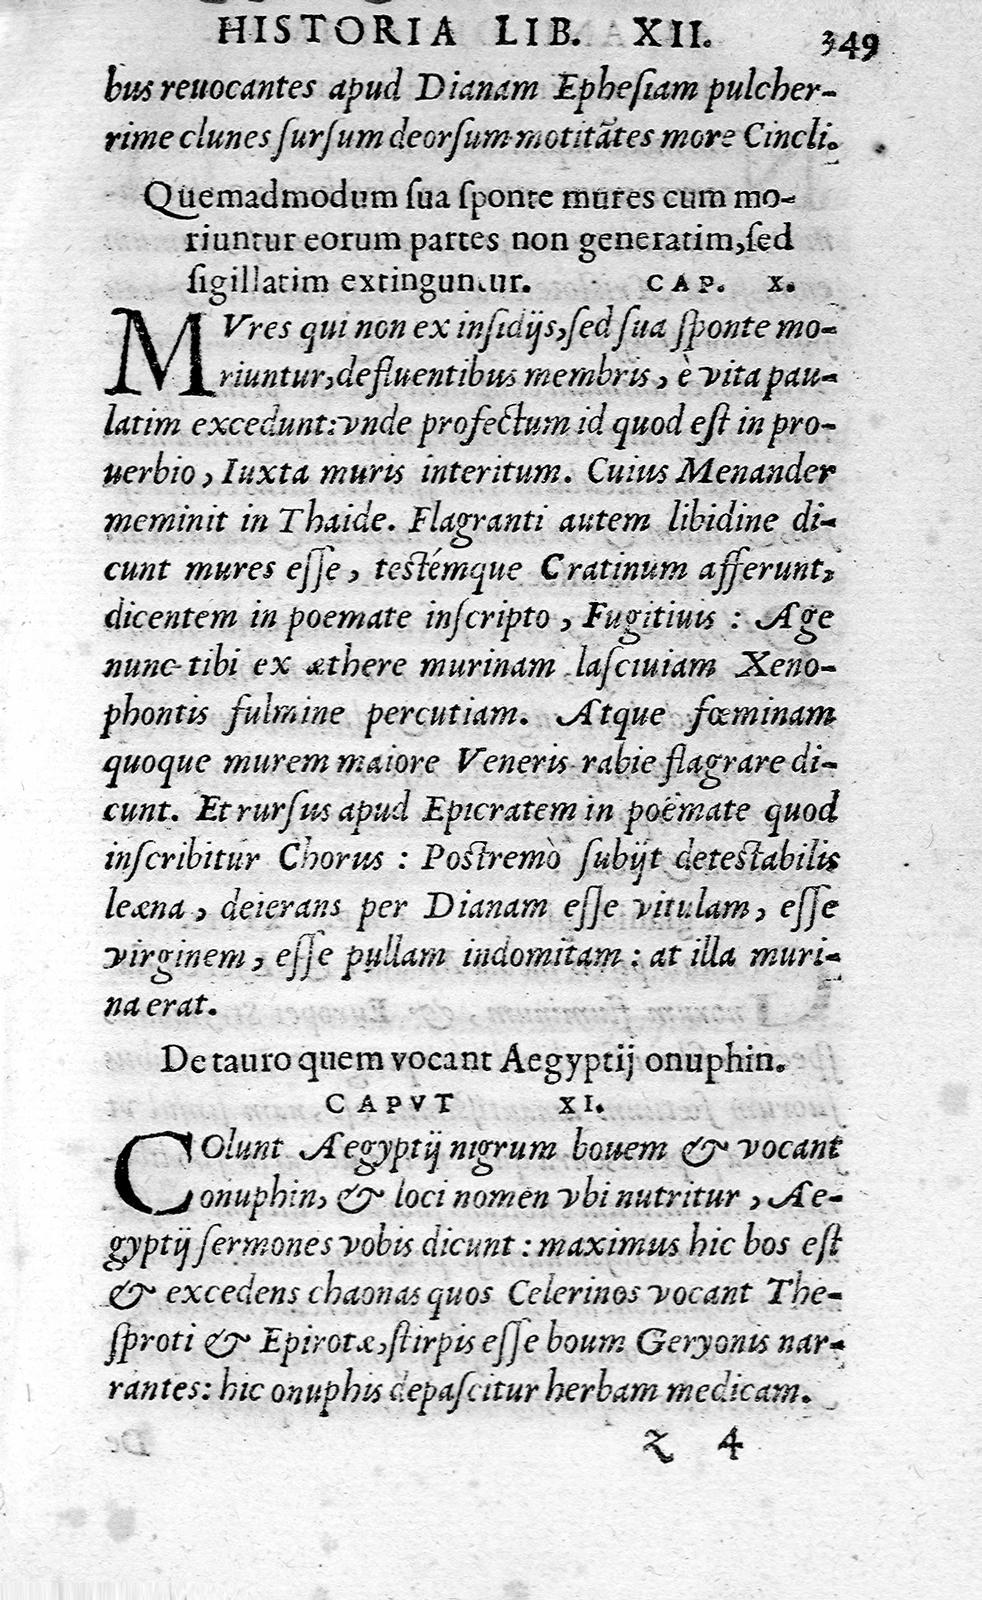 HISTORIA LIB. XII. 349
bus reuocantes apud Dianam Epheſiam pulcher-
rime clunes ſurſum deorſum motitātes more Cincli.
Quemadmodum ſua ſponte mures cum mo-
riuntur eorum partes non generatim, ſed
ſigillatim extinguntur. CAP. X.
MVres qui non ex inſidijs, ſed ſua ſponte mo-
riuntur, defluentibus membris, è vita pau-
latim excedunt: vnde profectum id quod eſt in pro-
uerbio, Iuxta muris interitum. Cuius Menander
meminit in Thaide. Flagranti autem libidine di-
cunt mures eſſe, testémque Cratinum afferunt,
dicentem in poemate inſcripto, Fugitiuis: Age
nunc tibi ex æthere murinam laſciuiam Xeno-
phontis fulmine percutiam. Atque fœminam
quoque murem maiore Veneris rabie flagrare di-
cunt. Et rurſus apud Epicratem in poëmate quod
inſcribitur Chorus: Postremò ſubijt detestabilis
leæna, deierans per Dianam eſſe vitulam, eſſe
virginem, eſſe pullam indomitam: at illa muri-
na erat.
De tauro quem vocant Aegyptij onuphin.
CAPVT XI.
COlunt Aegyptij nigrum bouem & vocant
onuphin, & loci nomen vbi nutritur, Ae-
gyptij ſermones vobis dicunt: maximus hic bos eſt
& excedens chaonas quos Celerinos vocant The-
ſproti & Epirotæ, ſtirpis eſſe boum Geryonis nar-
rantes: hic onuphis depaſcitur herbam medicam.
Z 4